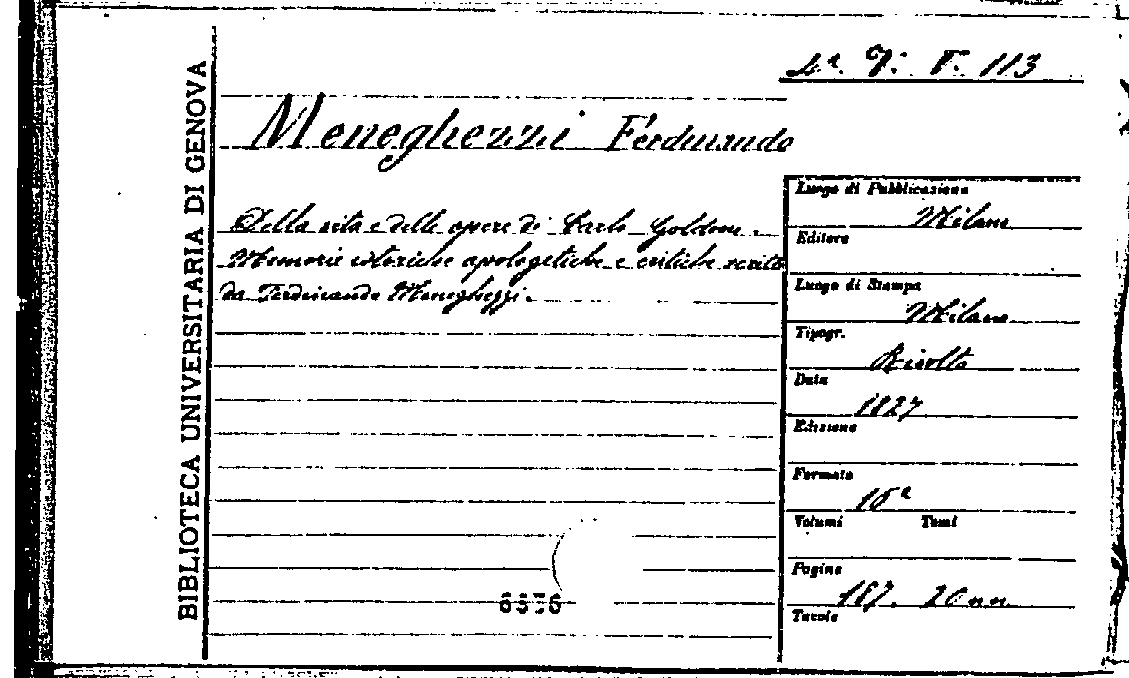 BIBLIOTECA UNIVERSITARIA DI GENOVA
Meneghezzi Ferdinando
Della vita e delle opere di Carlo Goldoni.
Memorie istoriche apologetiche e critiche scritte
da Ferdinando Meneghezzi.
F. 113
Luogo di Pubblicazione
Milano
Editore
Luogo di Stampa
Milano
Tipogr.
Rivolta
Data
1827
Edizione
Formato
16°
Volumi Tomi
Pagine
187. 20 nn.
Tavole